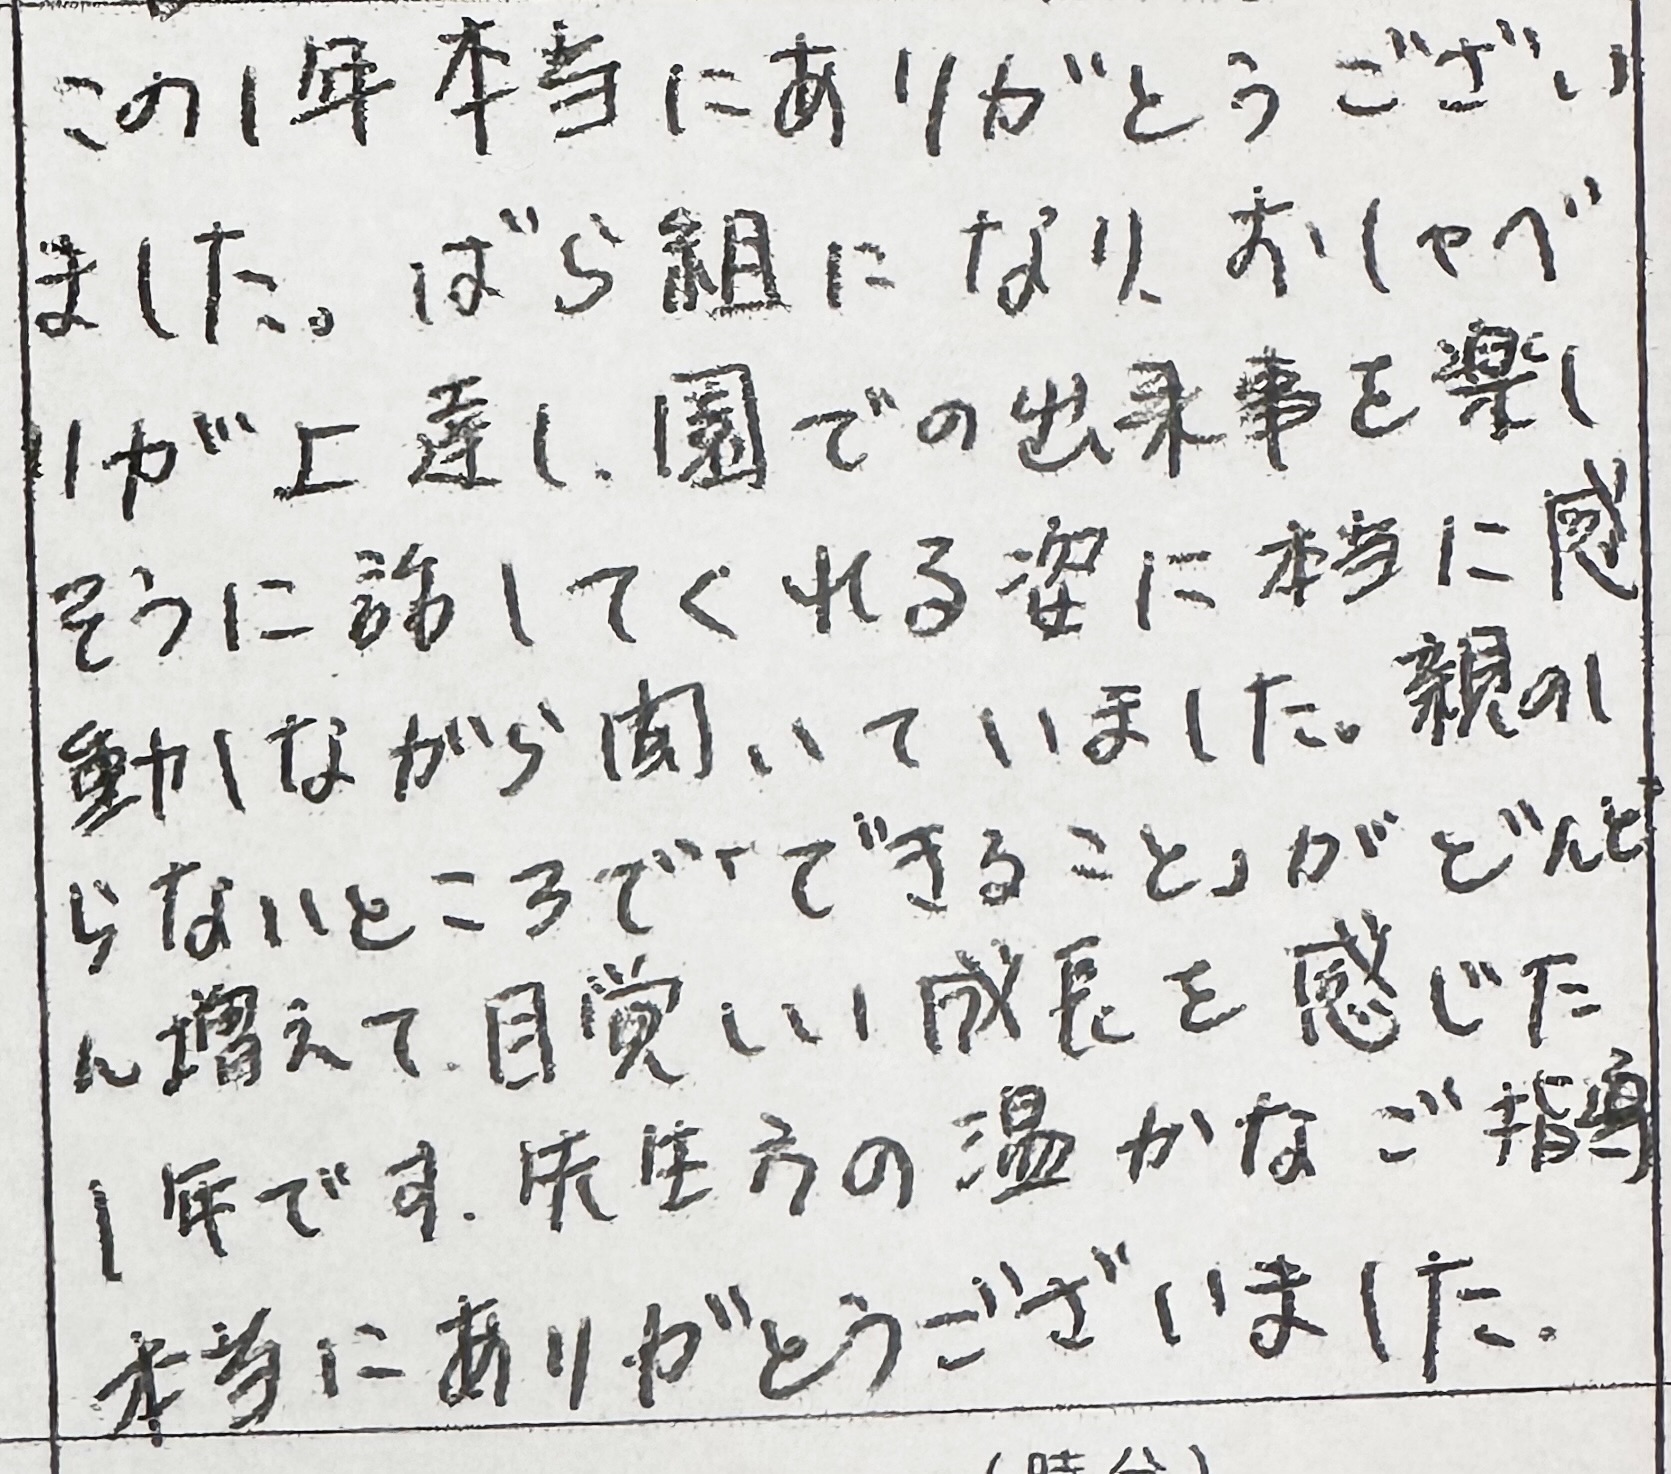 この1年本当にありがとうござい
ました。ばら組になり、おしゃべ
りが上達し、園での出来事を楽し
そうに話してくれる姿に本当に感
動しながら聞いていました。親のし
らないところで「できること」がどんど
ん増えて、目覚しい成長を感じた
1年です。先生方の温かなご指導
本当にありがとうございました。
(時分)